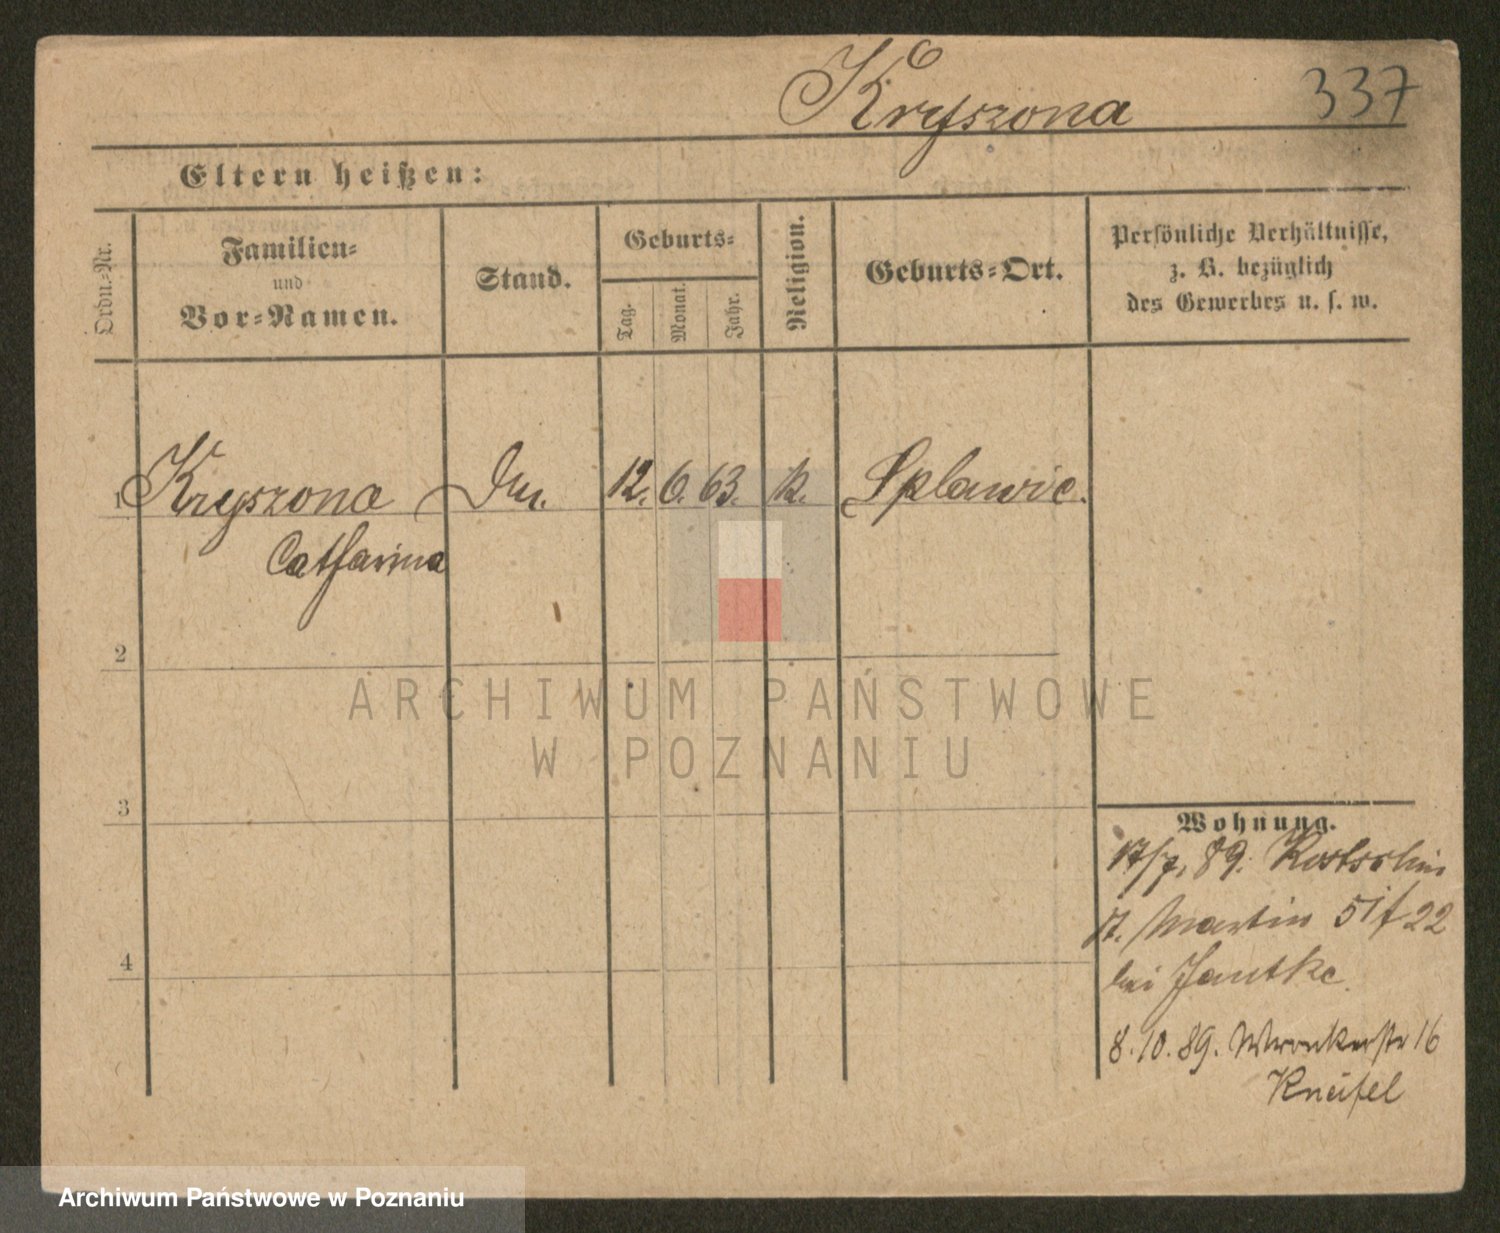 Kryszona 337
Eltern heißen:
Ordn.-Nr.
Familien-
und
Vor-Namen.
Stand.
Geburts-
Tag.
Monat.
Jahr.
Religion.
Geburts-Ort.
Persönliche Verhältnisse,
z. B. bezüglich
des Gewerbes u. s. w.
1 Kryszona 12. 6. 63. k. Splawie.
Catharina
2
3
4
Wohnung.
17/7. 89.
St. Martin 51 22
bei Jantke.
8.10.89. Wronkerstr 16
Kneifel
ARCHIWUM PAŃSTWOWE
W POZNANIU
Archiwum Państwowe w Poznaniu